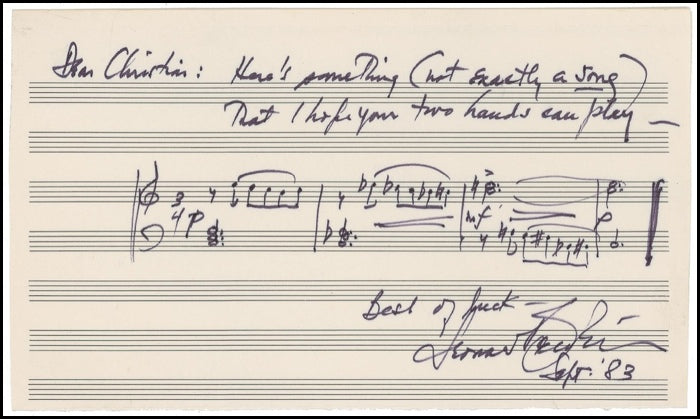 Dear Christian: Here's something (not exactly a song)
That I hope your two hands can play —
3
4 p
mf
p
Best of luck —
Leonard Bernstein
Sept. '83